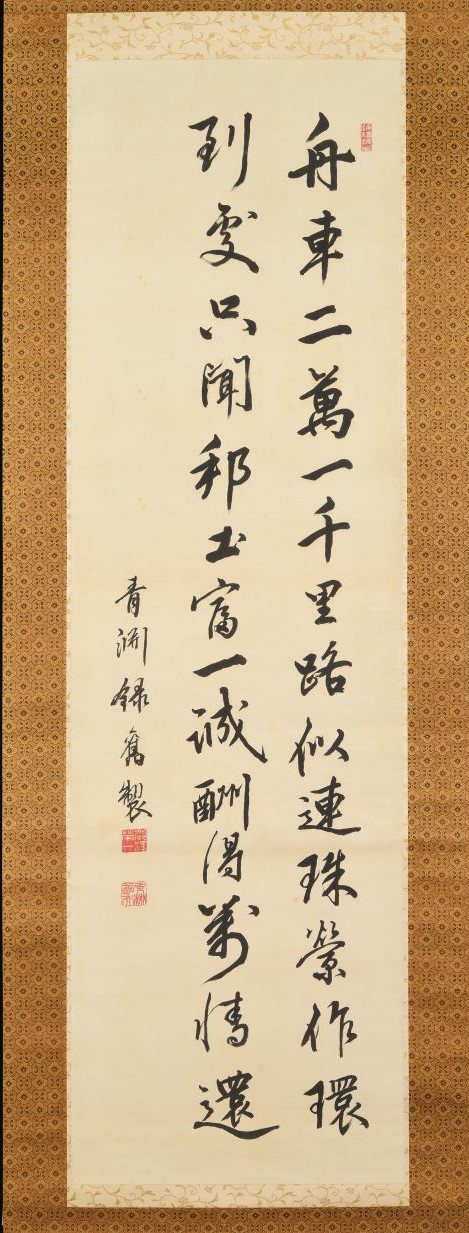 舟車二萬一千里路似連珠縈作環
到処只聞邦土富一誠酬得萬情還
青淵録舊製